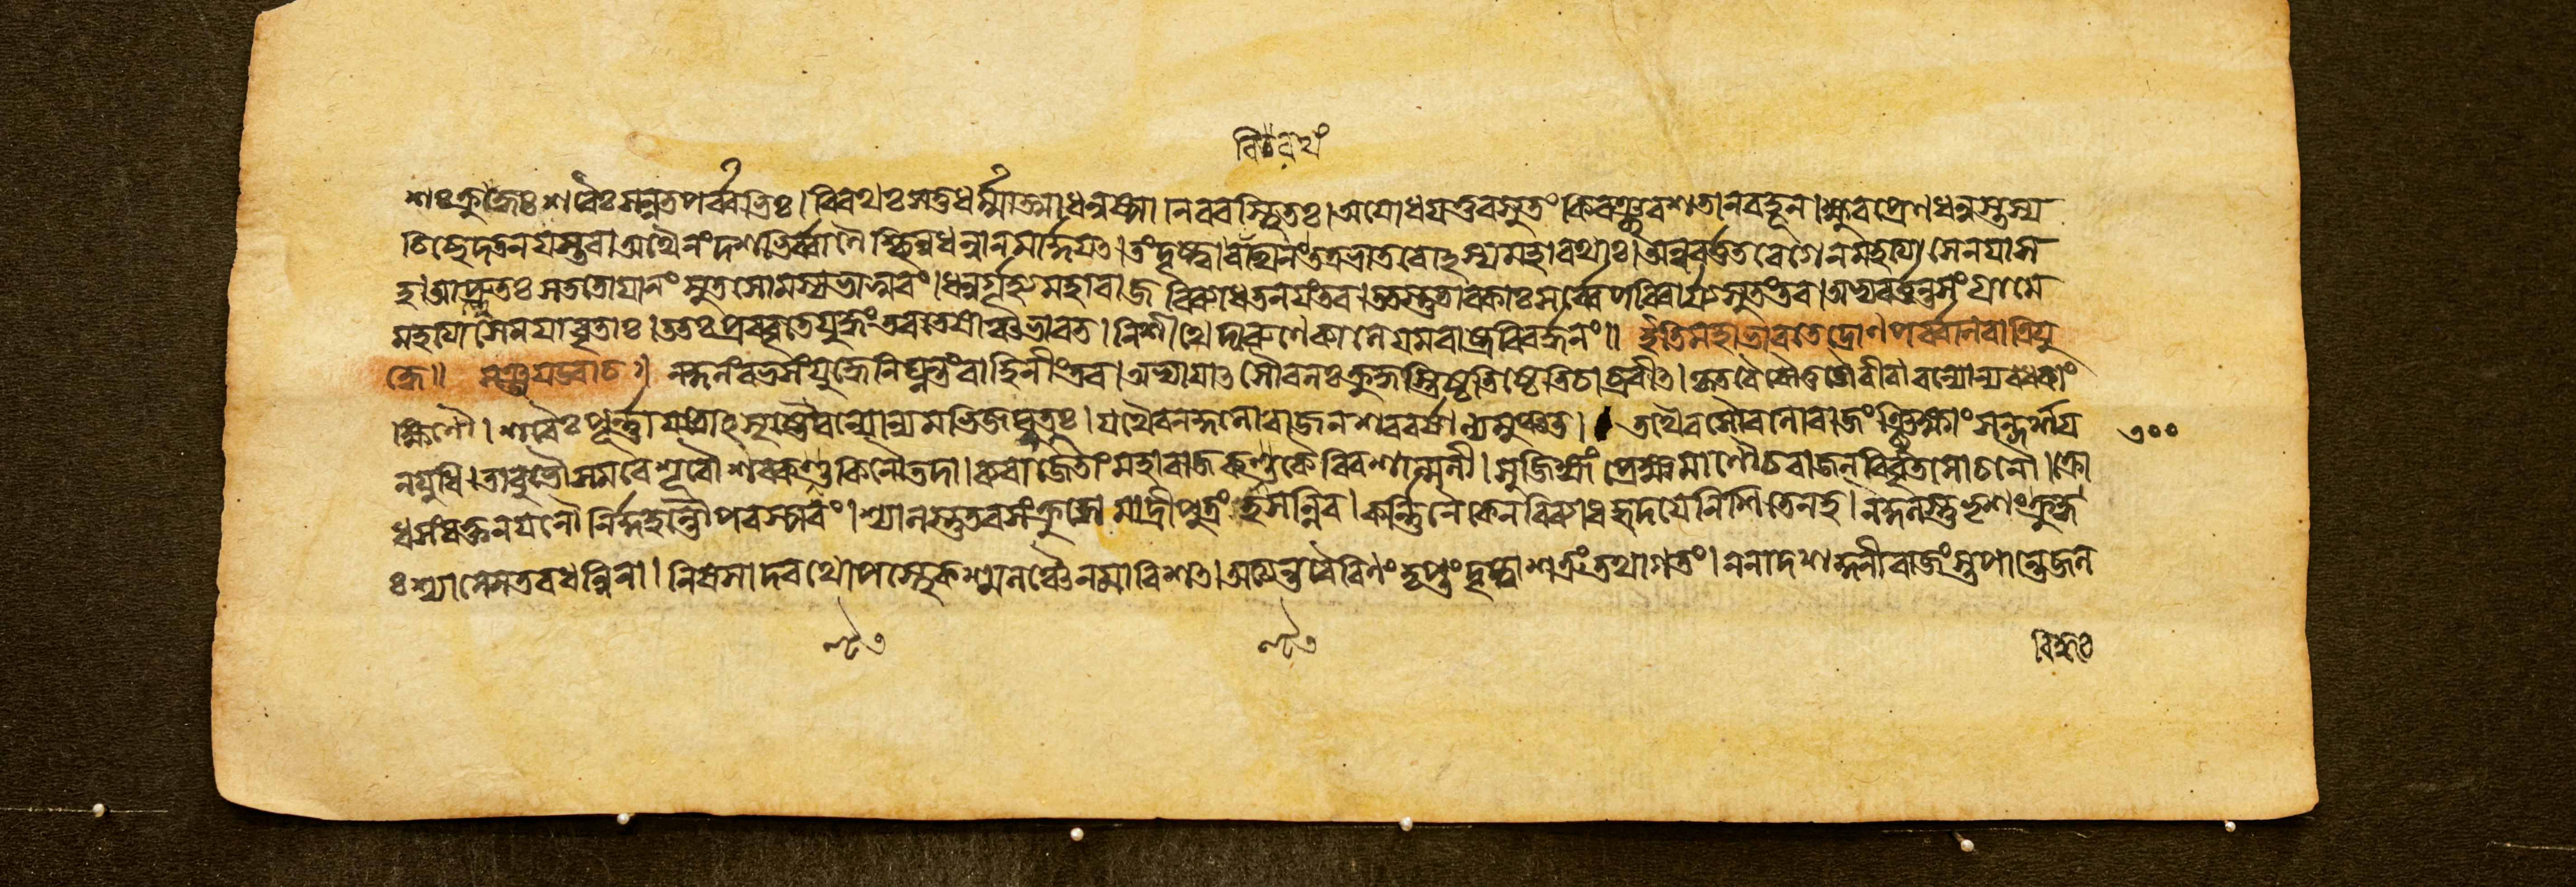 ৰিৰথং
শঃ ক্রুদ্ধঃ শৰৈঃ সন্নতপর্ব্বভিঃ। বিৰথঃ সতুধর্ম্মাত্মা ধনুষ্পাণিৰবস্থিতঃ। অযোধযত্তৱসুতং কিৰঞ্ছৰশতানবহূন। ক্ষুৰপ্রেণধনুস্তস্য
চিচ্ছেদতনযস্তৱ। অথৈনং দশভির্ব্বাণৈশ্ছিন্নধন্বানমার্দ্দযৎ। তং দৃষ্ট্বা বিৰথং তত্রভ্রাতৰোঽস্যমহাৰথাঃ। অন্ববর্ত্তন্তবেগেনমহত্যাসেনযাস
হ। আপ্লুতঃ সততোযানং সুতসোমস্যভাস্বৰং। ধনুর্গৃহ্যমহাৰাজ বিব্যাধতনযংতৱ। ততস্তুতাবকাঃ সর্ব্বেপৰিবার্য্যসুতংতৱ। অভ্যবর্ত্তন্তসংগ্রামে
মহত্যাসেনযাবৃতাঃ। ততঃ প্রববৃতেযুদ্ধংতৱতেষাঞ্চভাৰত। নিশীথেদাৰুণেকালেযমৰাষ্ট্রবিবর্দ্ধনং॥ ইতিমহাভাৰতেদ্রোণপর্ব্বণিৰাত্রিযু
দ্ধে॥ সঞ্জযউবাচ॥ নকুলংৰভসংযুদ্ধেনিঘ্নন্তংবাহিনীংতৱ। অভ্যযাৎ সৌবলঃ ক্রুদ্ধস্তিষ্ঠতিষ্ঠেতিচাব্রবীৎ। কৃতবৈৰৌতুতৌবীৰাবন্যোন্যবধকাং
ক্ষিণৌ। শৰৈঃ পূর্ণাযতোৎসৃষ্টৈৰন্যোন্যমভিজঘ্নতুঃ। যথৈবনকুলোৰাজনশৰবর্ষাণ্যমুঞ্চত। তথৈবসৌবলোৰাজং শিক্ষাং সন্দর্শয
নযুধি। তাবুভৌসমৰেশূৰৌশৰকণ্টকিনৌতদা। ব্যৰাজেতাং মহাৰাজকণ্টকৈৰিবশাল্মলী। সুজিহ্মং প্রেক্ষমাণৌচৰাজনবিবৃতলোচনৌ। ক্রো
ধসংৰক্তনযনৌ নির্দ্দহন্তৌপৰস্পৰং। শ্যালস্তুতৱসংক্রুদ্ধোমাদ্রীপুত্রং হসন্নিব। কর্ণিনৈকেনবিব্যাধহৃদযেনিশিতেনহ। নকুলস্তুভৃশং ক্রুদ্ধ
ঃ শ্যালেনতৱধন্বিনা। নিষসাদৰথোপস্থেকশ্মলঞ্চৈনমাবিশৎ। অত্যন্তবৈৰিণং দৃপ্তংদৃষ্ট্বাশত্রুংতথাগতং। ননাদশকুনীৰাজংস্তপান্তেজল
১০০
বিদ্ধঃ